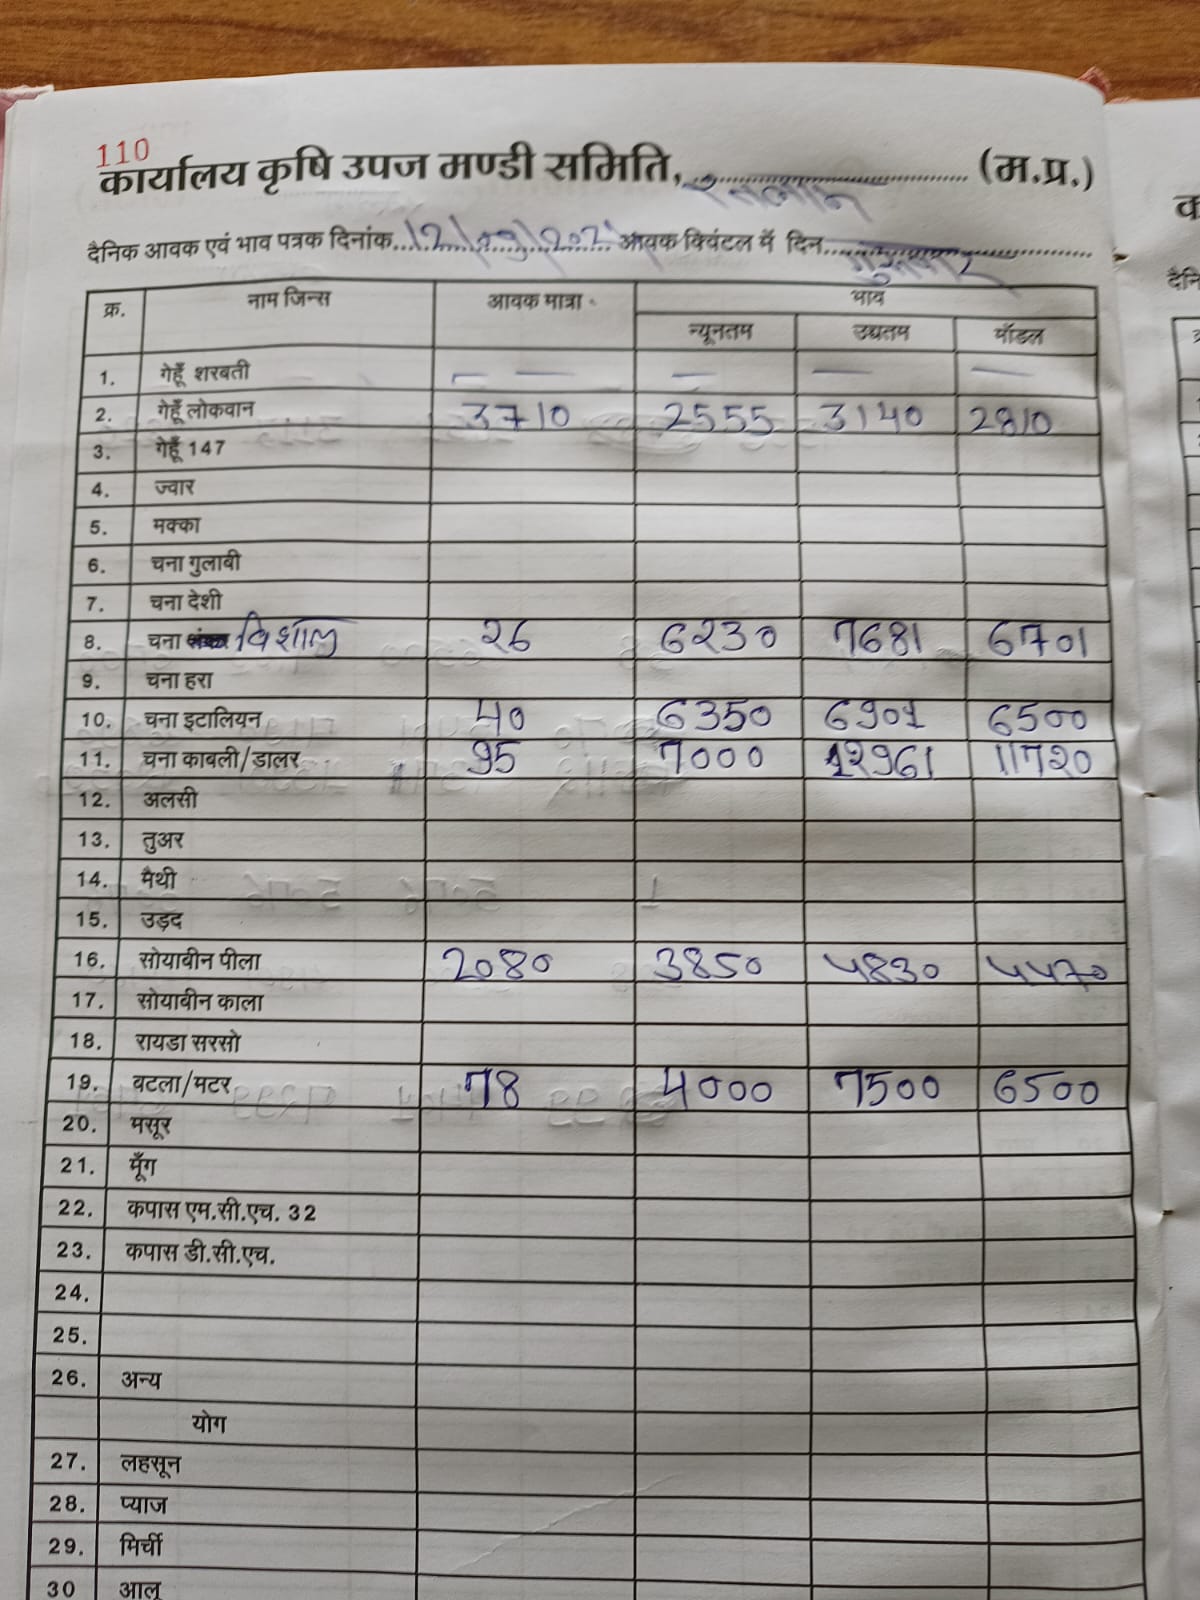 110
कार्यालय कृषि उपज मण्डी समिति, रतलाम (म.प्र.)
दैनिक आवक एवं भाव पत्रक दिनांक 12/09/202 आवक क्विंटल में दिन गुरुवार
क्र. नाम जिन्स आवक मात्रा भाव
न्यूनतम उच्चतम मॉडल
1. गेहूँ शरबती — — — — —
2. गेहूँ लोकवान 3710 2555 3140 2810
3. गेहूँ 147
4. ज्वार
5. मक्का
6. चना गुलाबी
7. चना देशी
8. चना विशाल 26 6230 7681 6701
9. चना हरा
10. चना इटालियन 40 6350 6901 6500
11. चना काबली/डालर 95 7000 12961 11720
12. अलसी
13. तुअर
14. मैथी
15. उड़द
16. सोयाबीन पीला 2080 3850 4830 4470
17. सोयाबीन काला
18. रायडा सरसो
19. बटला/मटर 78 4000 7500 6500
20. मसूर
21. मूँग
22. कपास एम.सी.एच. 32
23. कपास डी.सी.एच.
24.
25.
26. अन्य
योग
27. लहसून
28. प्याज
29. मिर्ची
30 आलू